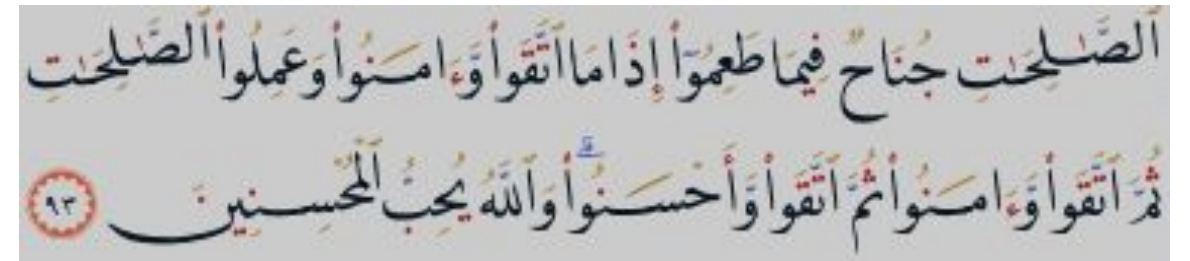 ٱلصَّٰلِحَٰتِ جُنَاحٞ فِيمَا طَعِمُوٓاْ إِذَا مَا ٱتَّقَواْ وَّءَامَنُواْ وَعَمِلُواْ ٱلصَّٰلِحَٰتِ
ثُمَّ ٱتَّقَواْ وَّءَامَنُواْ ثُمَّ ٱتَّقَواْ وَّأَحۡسَنُواْۚ وَٱللَّهُ يُحِبُّ ٱلۡمُحۡسِنِينَ ٩٣